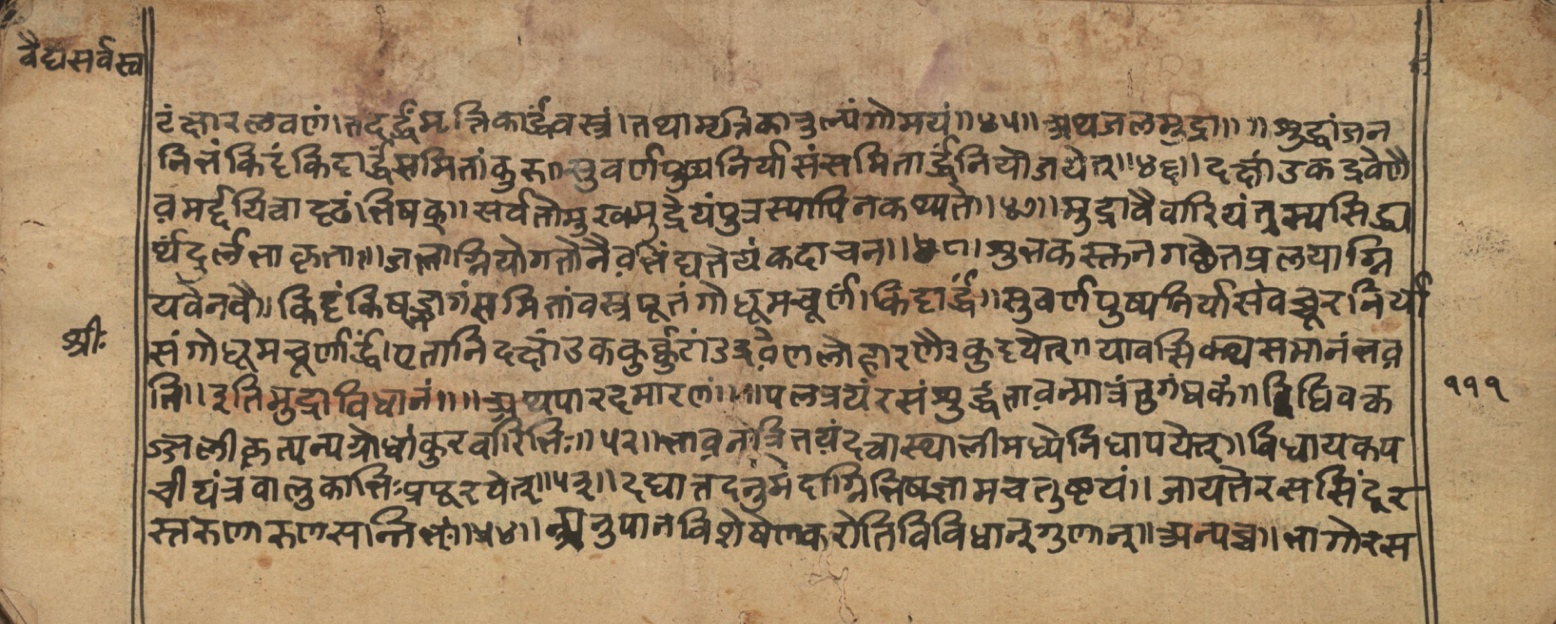 वैद्यसर्वस्व
टंक्षारलवणं।तदर्द्धंमृत्तिकार्द्धंवस्त्रं।तथामृत्तिकातुल्यंगोमयं॥४५॥अथजलमुद्रा॥॥शुद्धांजन
निभंकिट्टंकिट्टार्द्धंसमितांकुरु।सुवर्णपुष्पनिर्यासंसमितार्द्धंनियोजयेत्॥४६॥दक्षांडकद्रवेणै
वमर्द्दयित्वादृढंभिषक्॥सर्वतोमुखमुद्रेयंपुत्रस्यापिनकथ्यते॥४७॥मुद्रावैवारियंत्रस्यसिद्ध्य
र्थंदुर्लभाकृता॥जलाग्नियोगतोनैवभिंद्यतेयंकदाचन॥४८॥
यवेनवै॥किट्टंकिषड्भागंसमितांवस्त्रपूतंगोधूमचूर्णं।किट्टार्द्धं॥सुवर्णपुष्पनिर्यासंवच्चूरनिर्या
श्रीः
संगोधूमचूर्णार्द्धं।एतानिदक्षांडककुर्क्कुटांडद्रवेणलोहारणैःकुट्टयेत्॥यावत्सिक्थसमानंभव
ति॥इतिमुद्राविधानं॥॥अथपारदमारणं॥॥पलत्रयंरसंशुद्धंतावन्मात्रंतुगंधकं॥विधिवत्क
१११
ज्जलीकृत्यन्यग्रोधांकुरवारिभिः॥५२॥भावनात्रितयंदत्वास्थालीमध्येनिधापयेत्॥विधायकप
चीयंत्रवालुकाभिःप्रपूरयेत्॥५३॥दद्यात्तदनुमंदाग्निंभिषग्यामचतुष्टयं॥जायतेरससिंदूर
स्तरुणारुणसन्निभः॥५४॥अनुपानविशेषेणकरोतिविविधान्गुणान्॥अन्यच्च।भागोरस